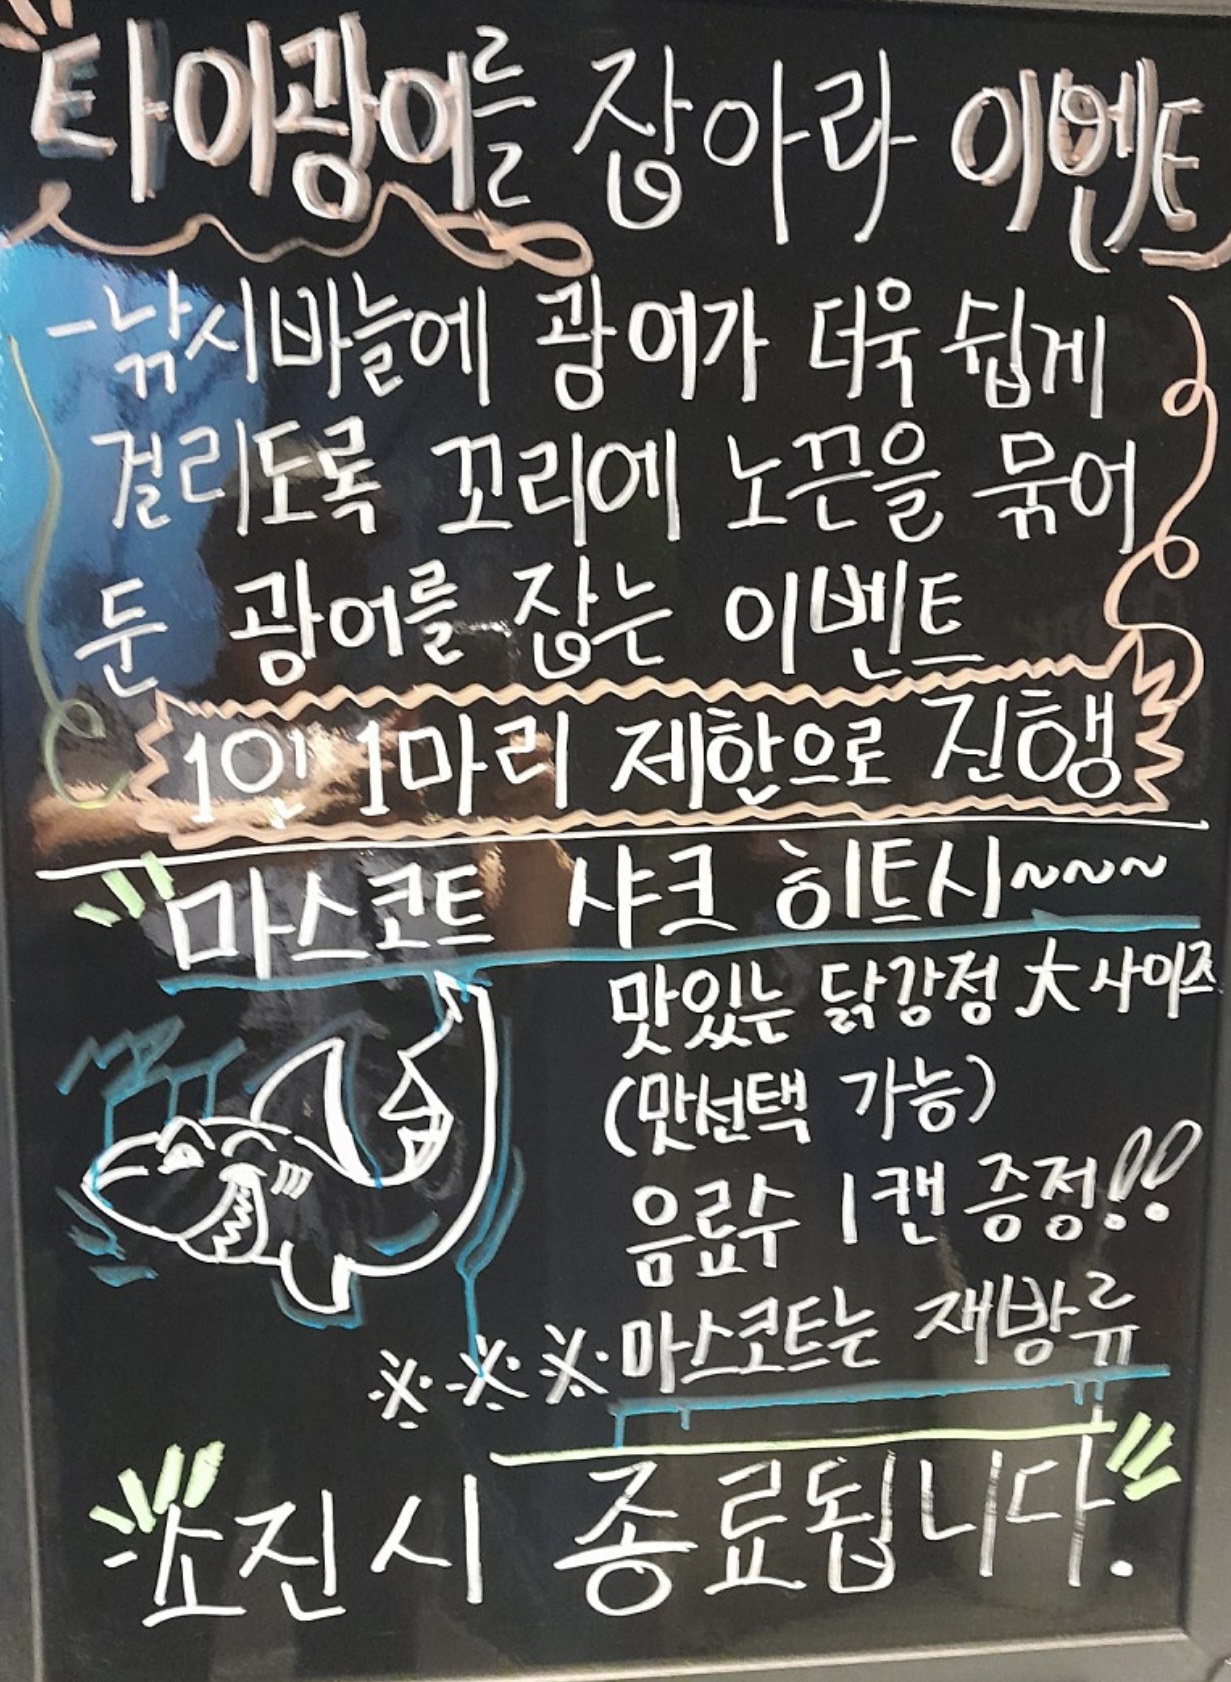 타이광어를 잡아라 이벤트
-낚시바늘에 광어가 더욱 쉽게
걸리도록 꼬리에 노끈을 묶어
둔 광어를 잡는 이벤트
1인 1마리 제한으로 진행
마스코트 샤크 히트시~~~
맛있는 닭강정 大 사이즈
(맛선택 가능)
음료수 1캔 증정!!
※※※마스코트는 재방류
소진시 종료됩니다.